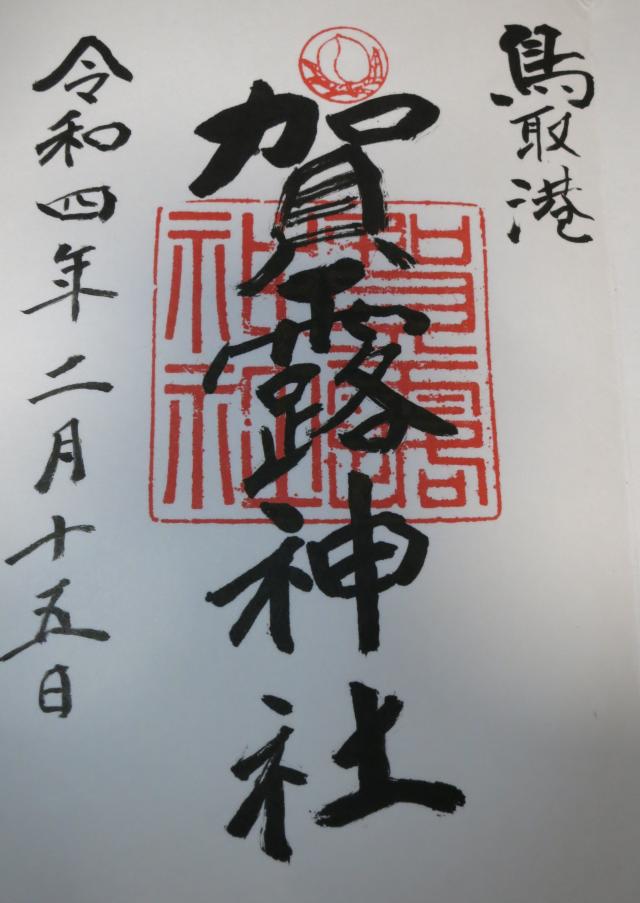 鳥取港
賀露神社
賀露神社
令和四年二月十五日